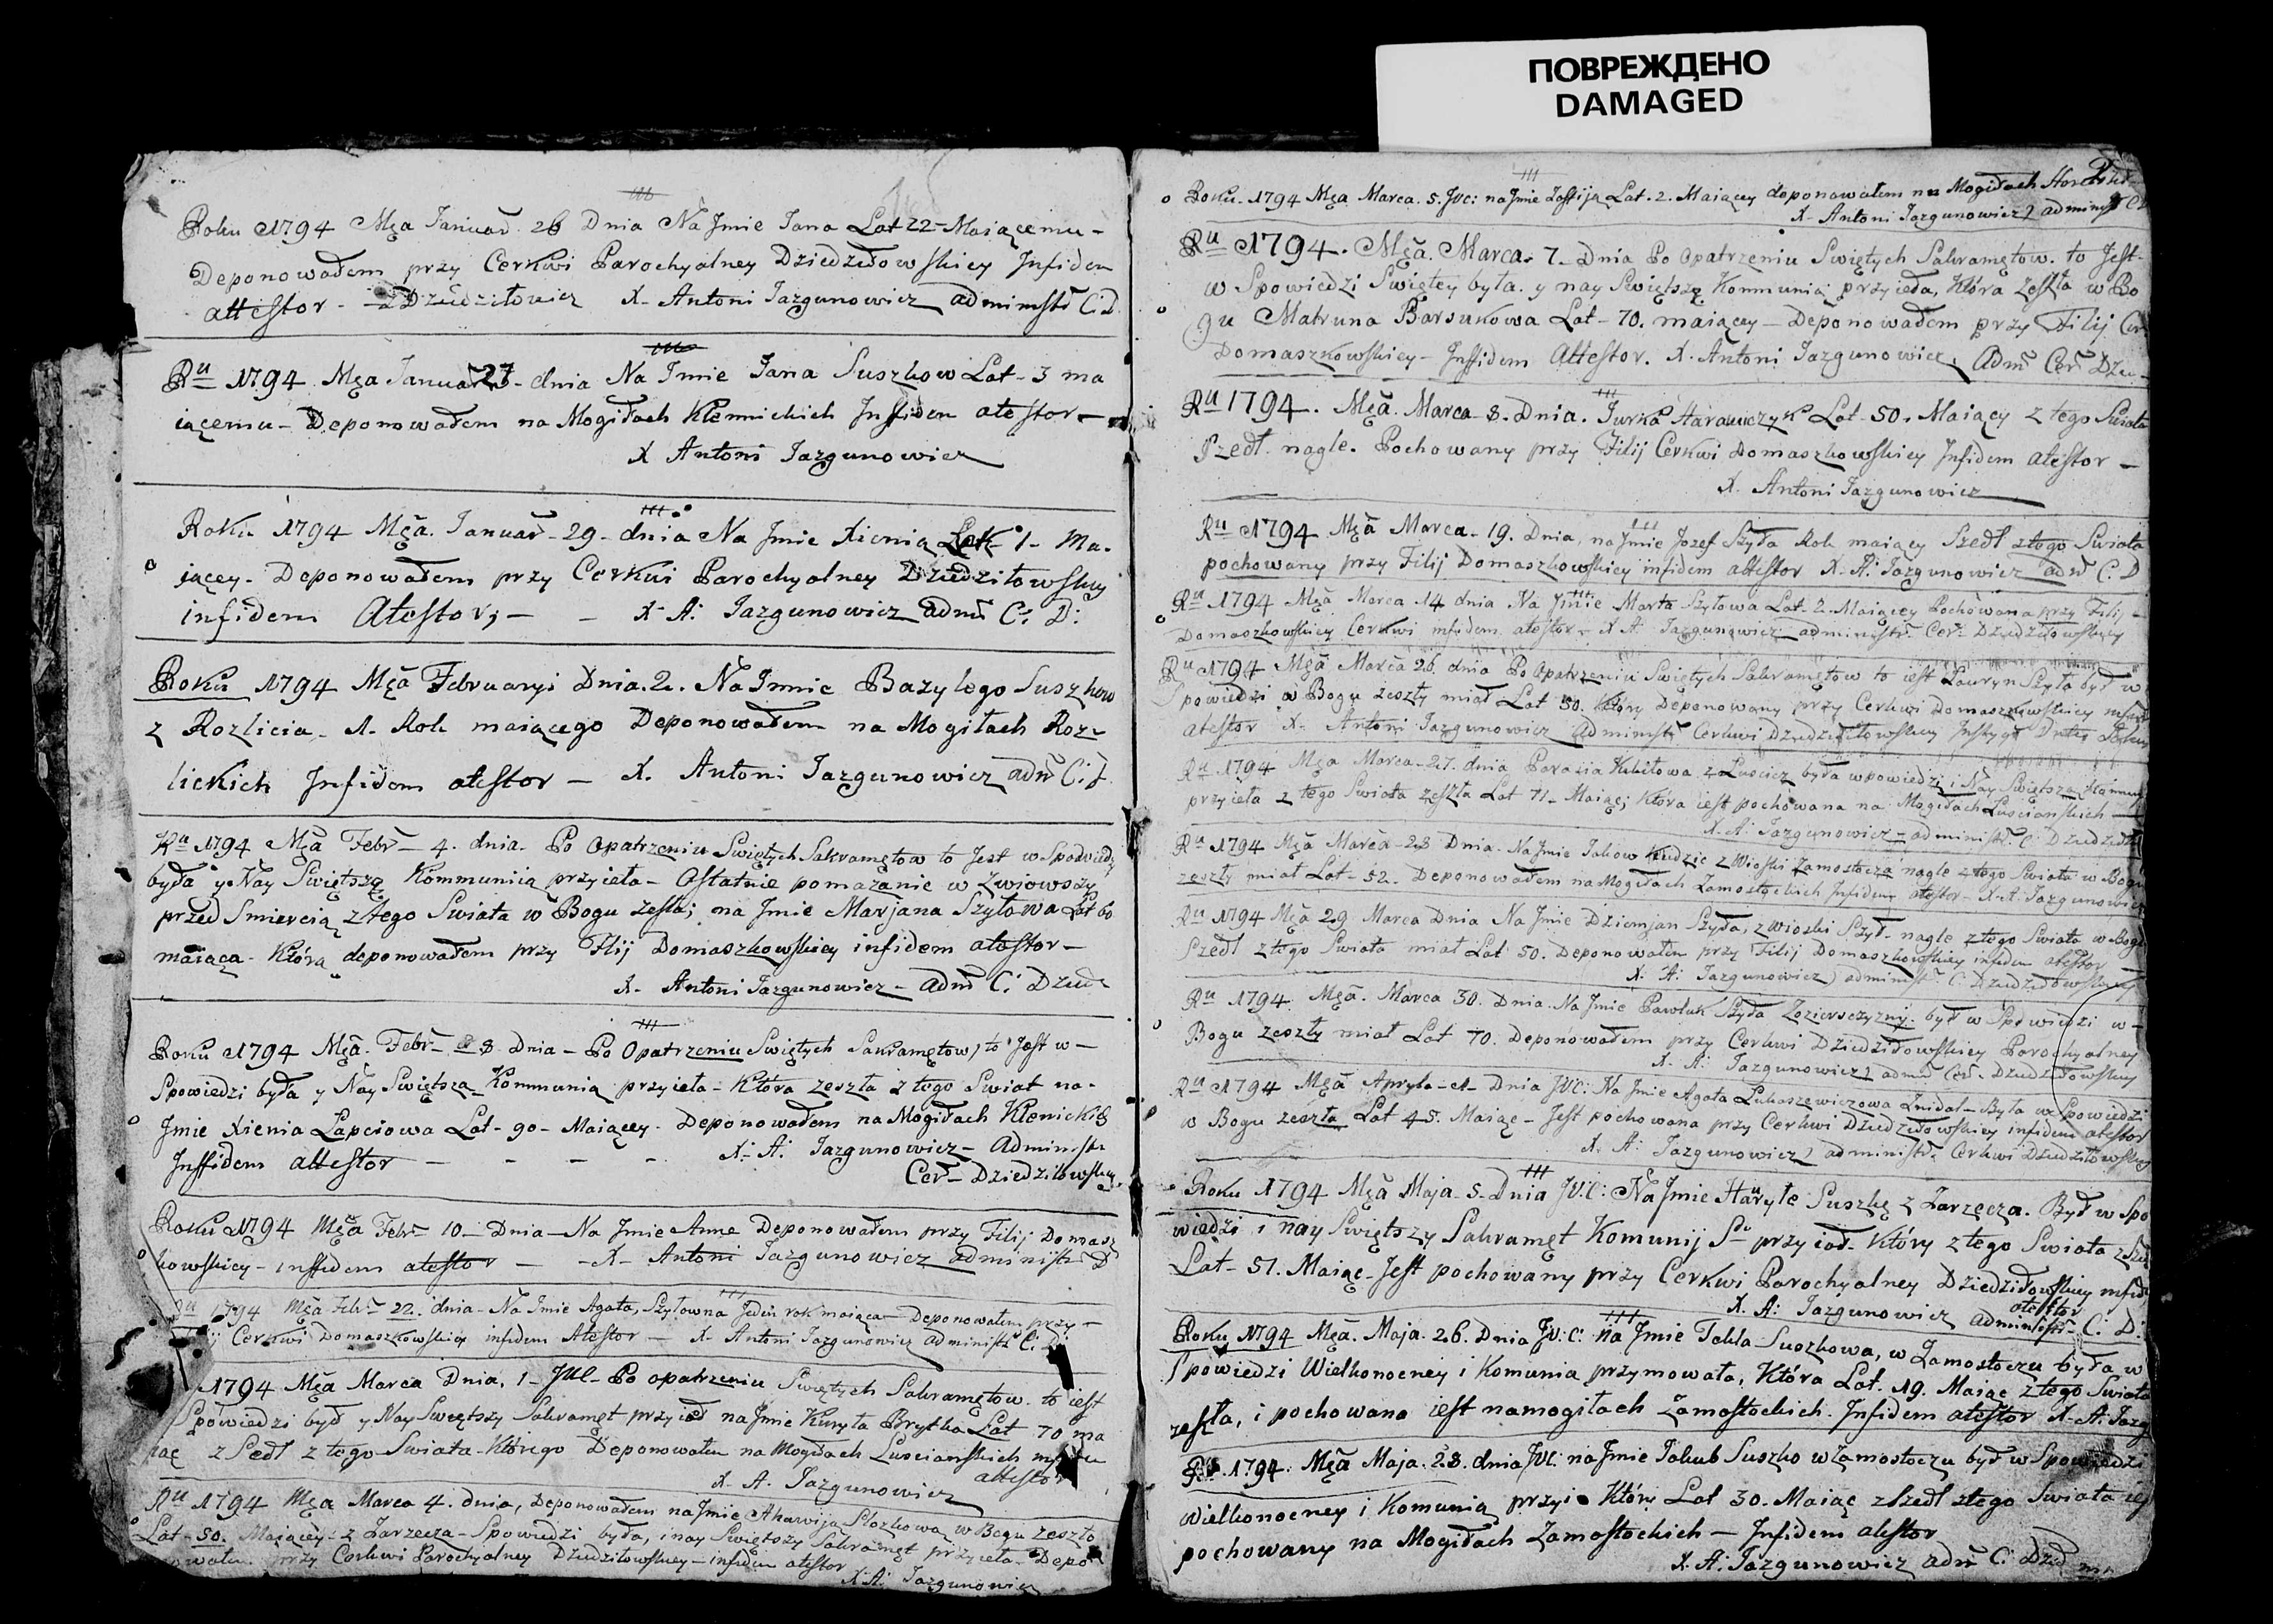 ПОВРЕЖДЕНО
DAMAGED
Roku 1794 Mca Januar. 26 Dnia Na Jmie Jana Lat 22 Maiącemu-
Deponowałem przy Cerkwi Parochyalney Dziedziłowskiey Infidem
attestor - X. Antoni Jazgunowicz administr C: D.
Ru 1794 Mca Januar 27 - dnia Na Jmie Jana Suszkow Lat - 3 ma
iącemu - Deponowałem na Mogiłach Klennickich Infidem atestor -
X Antoni Jazgunowicz
Roku 1794 Mca. Januar - 29 - dnia Na Jmie Xienią Lat - 1 - Ma-
iącey - Deponowałem przy Cerkwi Parochyalney Dziedziłowskiey
infidem Atestor; - - X. A: Jazgunowicz adm C: D:
Roku 1794 Mca Februaryi Dnia. 2. Na Jmie Bazylego Suszkow
z Rozlicia - 1. Rok maiącego Deponowałem na Mogiłach Roz-
lickich Infidem atestor - X. Antoni Jazgunowicz adm C: d.
Ru 1794 Mca Febr - 4. dnia. Po Opatrzeniu Swiętych Sakramętow to Jest w Spowiedzi
była y Nay Swiętszą Kommuniią przyieła - Ostatnie pomazanie wziowszy
przed Smiercią z tego Swiata w Bogu zesła; na Jmie Marjana Szyłowa Lat 60
maiąca - Którą deponowałem przy Filij Domaszkowskiey infidem atestor -
X. Antoni Jazgunowicz - adm C: Dzied
Roku 1794 Mca. Febr - 8. Dnia - Po Opatrzeniu Swiętych Sakramętow, to Jest w -
Spowiedzi była y Nay Swiętszą Kommunią przyieła - Która zeszła z tego Swiat na-
Jmie Xienia Łapciowa Lat - 90 - Maiącey - Deponowałem na Mogiłach Klenickich
Infidem attestor - - - - X. A: Jazgunowicz - Administr
Cer - Dziedziłowskiey
Roku 1794 Mca Febr - 10 - Dnia - Na Jmie Anne Deponowałem przy Filij Domasz
kowskiey - infidem atestor - - X - Antoni Jazgunowicz administr D
Ru 1794 Mca Febr - 22. dnia - Na Jmie Agata, Szyłowna Jeden rok maiąca - Deponowałem przy -
Cerkwi Domaszkowskiey infidem Atestor - X. Antoni Jazgunowicz administr C:
1794 Mca Marca Dnia, 1 - Po opatrzeniu Swiętych Sakramętow. to iest
Spowiedzi był y Nay Swiętszy Sakramęt przyioł na Jmie Kuryła Brytka Lat 70 ma
iąc zSedł z tego Swiata - Którego Deponowałem na Mogiłach Lusciańskich
attestor
X. A. Jazgunowicz
Ru 1794 Mca Marca 4. dnia, Deponowałem na Jmie w Bogu zeszło
Lat - 50. Maiącey - z Zarzecza - Spowiedzi była, i nay Swiętszy Sakramęt przyieła - Depo
przy Cerkwi Parochyalney Dziedziłowskiey - infidem atestor
X. A: Jazgunowicz
Roku - 1794 Mca Marca. 5. JVC: na Jmie Lat - 2. Maiącey deponowałem na Mogiłach
X - Antoni Jazgunowicz administr
Ru 1794. Mca. Marca. 7 - Dnia Po Opatrzeniu Swiętych Sakramętow. to Jest -
w Spowiedzi Swiętey była. y nay Swiętszą Kommunią przyieła, Która Zeszła w Bo
gu Matruna Barsukowa Lat - 70. maiącey - Deponowałem przy Filij Cer
Domaszkowskiey - Infidem Attestor. X. Antoni Jazgunowicz, Adm Cer Dzie
Ru 1794. Mca. Marca - 8. Dnia. Jurka Harawczyk Lat - 50. Maiący z tego Swiata
Szedł nagle. Pochowany przy Filij Cerkwi Domaszkowskiey Infidem atestor -
X. Antoni Jazgunowicz
Ru 1794 Mca Marca - 19. Dnia, na Jmie Jozef Szyła Rok maiący Szedł z tego Swiata
pochowany przy Filij Domaszkowskiey infidem attestor X. A: Jazgunowicz adm C. D
Ru 1794 Mca Marca 14 dnia Na Jmie Marta Szyłowa Lat - 2. Maiącey Pochowana przy Filij -
Domaszkowskiey Cerkwi infidem atestor - X A: Jazgunowicz administr Cer - Dziedziłowskiey
Ru 1794 Mca Marca 26. dnia Po Opatrzeniu Swiętych Sakramętow to iest Lauryn Szyła był w
Spowiedzi w Bogu zeszły miał Lat 50. Który Deponowany przy Cerkwi Domaszkowskiey
atestor X. Antoni Jazgunowicz administr Cerkwi Dziedziłowskiey
Ru 1794 Mca Marca - 27. dnia Parasia z Luscicz była w spowiedzi i Nay Swiętszą
przyieła z tego Swiata zeszła Lat 71 - Maiącej Która iest pochowana na Mogiłach Lusciańskich -
X. A: Jazgunowicz - administr. C:
Ru 1794 Mca Marca - 28 Dnia - Na Jmie Jakow z Wioski Zamostocza nagle z tego Swiata w Bogu
zeszły miał Lat - 52. Deponowałem na Mogiłach Zamostockich Infidem atestor - X. A: Jazgunowicz
Ru 1794 Mca 29 Marca Dnia Na Jmie Dziemjan Szyła, z Wioski Szył - nagle z tego Swiata w Bogu
Szedł z tego Swiata miał Lat 50. Deponowałem przy Filij Domaszkowskiey infidem atestor
X. A: Jazgunowicz administr C: Dziedziłowskiey
Ru 1794. Mca. Marca 30. Dnia. Na Jmie Pawluk Szyła był w Spowiedzi w -
Bogu zeszły miał Lat 70. Deponowałem przy Cerkwi Dziedziłowskiey Parochyalney
X. A: Jazgunowicz adm Cer. Dziedziłowskiey
Ru 1794 Mca Apryla - 1 - Dnia JVC: Na Jmie Agata Lukaszewiczowa - Była w Spowiedzi
w Bogu zeszła Lat 45. Maiąc - Jest pochowana przy Cerkwi Dziedziłowskiey infidem atestor
X. A: Jazgunowicz administr. Cerkwi Dziedziłowskiey
Roku 1794 Mca Maja - 5 - Dnia JV.C: Na Jmie Hauryłe Suszkę z Zarzecza. Był w Spo
wiedzi i nay Swiętszy Sakramęt Komunij S przyioł - Który z tego Swiata zszed
Lat - 51. Maiąc - Jest pochowany przy Cerkwi Parochyalney Dziedziłowskiey infid
atestor
X. A: Jazgunowicz administr - C: D:
Roku 1794 Mca. Maja. 26. Dnia JV.C: na Jmie Tekla Suszkowa, w Zamostoczu była w
Spowiedzi Wielkonocney i Komunia przymowała, Która Lat. 19. Maiąc z tego Swiata
zesła, i pochowana iest na mogiłach Zamostockich. Infidem atestor X. A. Jazg
Ru 1794. Mca Maja. 28. dnia JVC: na Jmie Jakub Suszko w Zamostoczu był w Spowiedzi
wielkonocney i Komunią przyi Który Lat 30. Maiąc zszedł z tego Swiata
pochowany na Mogiłach Zamostockich - Infidem atestor
X. A: Jazgunowicz adm C: Dzied